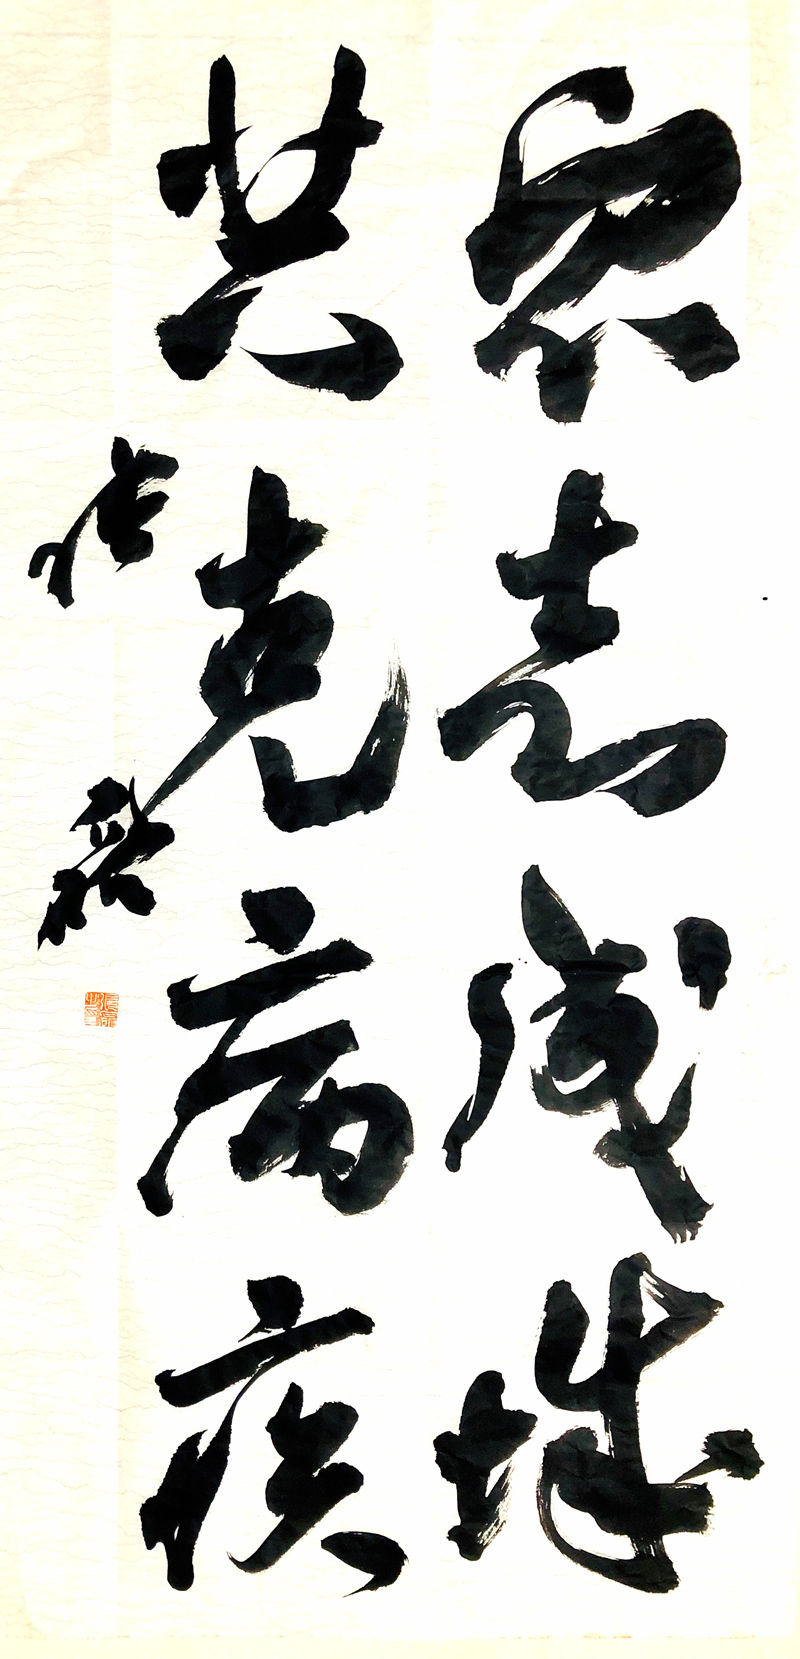 众志成城
共克病疾